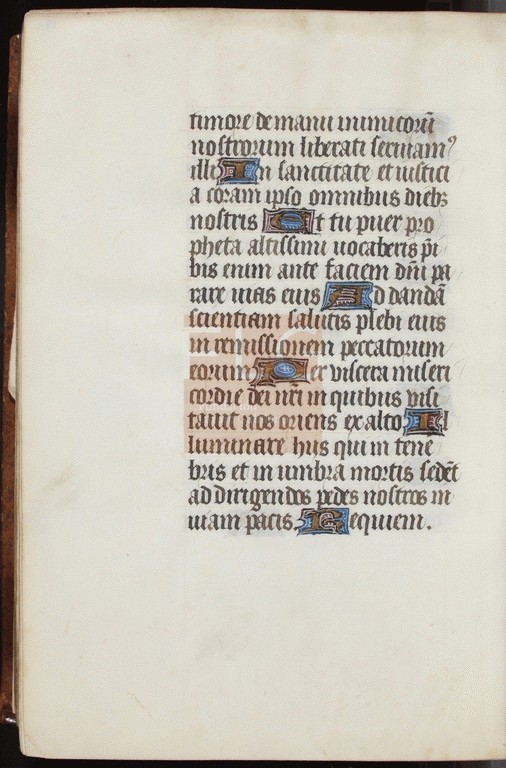 timore de manu inimicorū
nostrorum liberati seruiamꝰ
illi In sanctitate et iustici
a coram ipso omnibus diebꝫ
nostris Et tu puer pro
pheta altissimi uocaberis p̄i
bis enim ante faciem dn̄i pa
rare uias eius Ad dandā
scientiam salutis plebi eius
in remissionem peccatorum
eorum Per viscera miseri
cordie dei nr̄i in quibus visi
tauit nos oriens ex alto Il
luminare hiis qui in tene
bris et in umbra mortis sedēt
ad dirigendos pedes nostros in
uiam pacis Requiem.